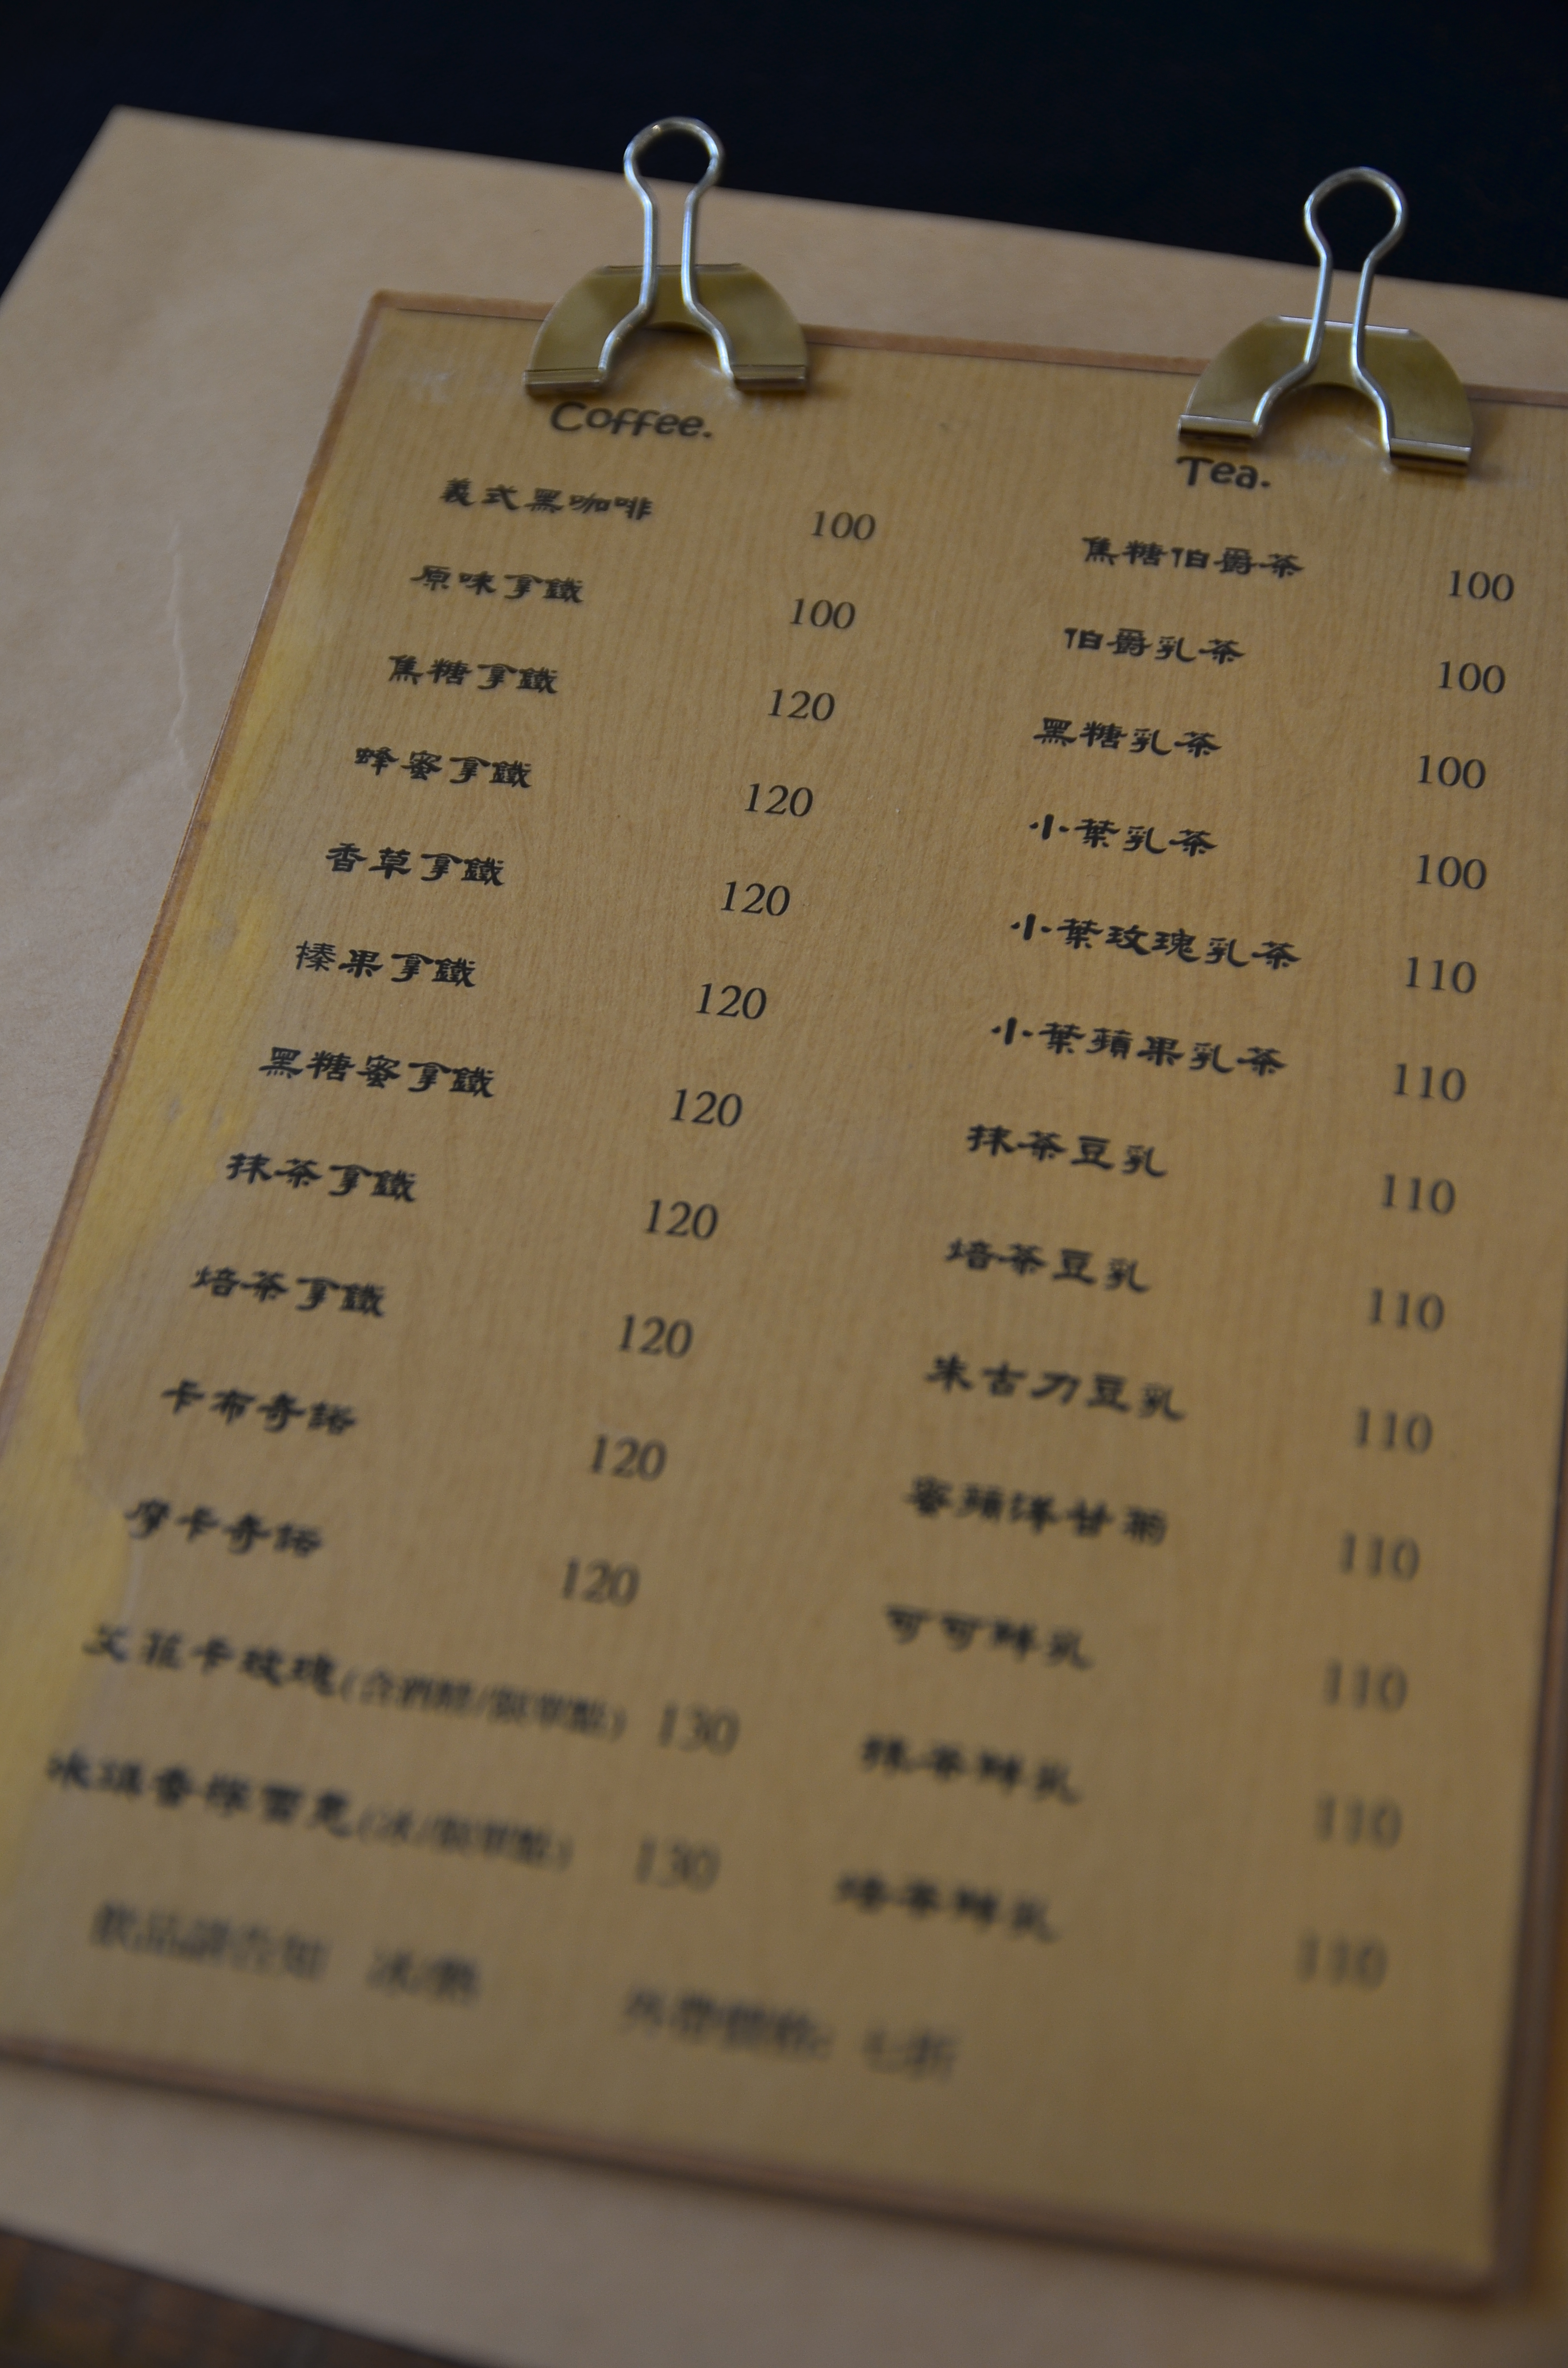 Coffee.
義式黑咖啡 100
原味拿鐵 100
焦糖拿鐵 120
蜂蜜拿鐵 120
香草拿鐵 120
榛果拿鐵 120
黑糖蜜拿鐵 120
抹茶拿鐵 120
焙茶拿鐵 120
卡布奇諾 120
摩卡奇諾 120
艾菲卡玫瑰(含酒精/限單點) 130
冰淇香榭雪意(冰/限單點) 130
飲品請告知 冰/熱
Tea.
焦糖伯爵茶 100
伯爵乳茶 100
黑糖乳茶 100
小葉乳茶 100
小葉玫瑰乳茶 110
小葉蘋果乳茶 110
抹茶豆乳 110
焙茶豆乳 110
朱古力豆乳 110
蜜蘋洋甘菊 110
可可鮮乳 110
抹茶鮮乳 110
焙茶鮮乳 110
外帶價格: 七折